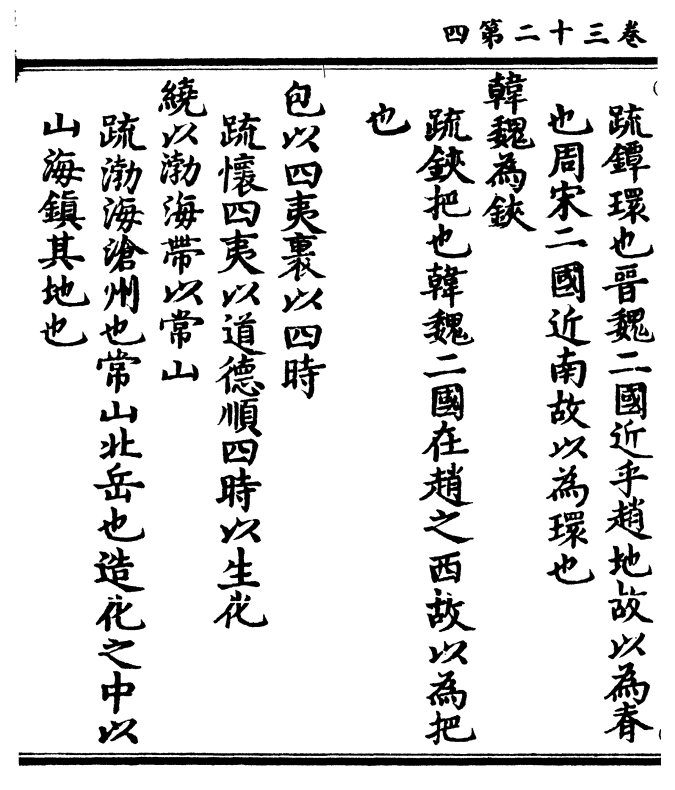 卷三十二第四
疏鐔環也晉魏二國近乎趙地故以為春
也周宋二國近南故以為環也
韓魏為鋏
疏鋏把也韓魏二國在趙之西故以為把
也
包以四夷裹以四時
疏懷四夷以道德順四時以生化
繞以渤海帶以常山
疏渤海滄州也常山北岳也造化之中以
山海鎮其地也